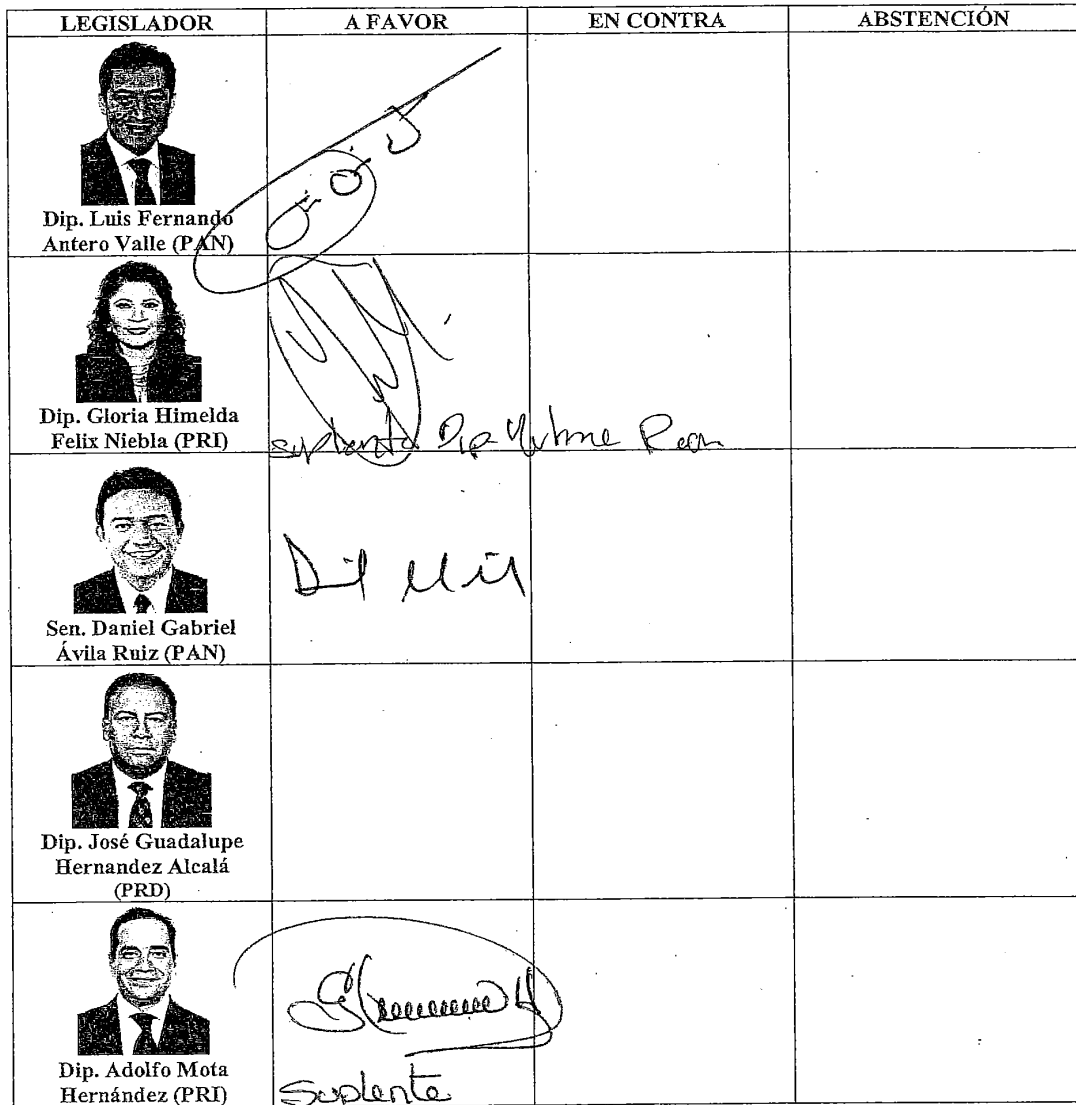 LEGISLADOR A FAVOR EN CONTRA ABSTENCIÓN
Dip. Luis Fernando
Antero Valle (PAN)
Dip. Gloria Himelda
Felix Niebla (PRI)
suplente Dip.
Sen. Daniel Gabriel
Ávila Ruiz (PAN)
Dip. José Guadalupe
Hernandez Alcalá
(PRD)
Dip. Adolfo Mota
Hernández (PRI)
Suplente